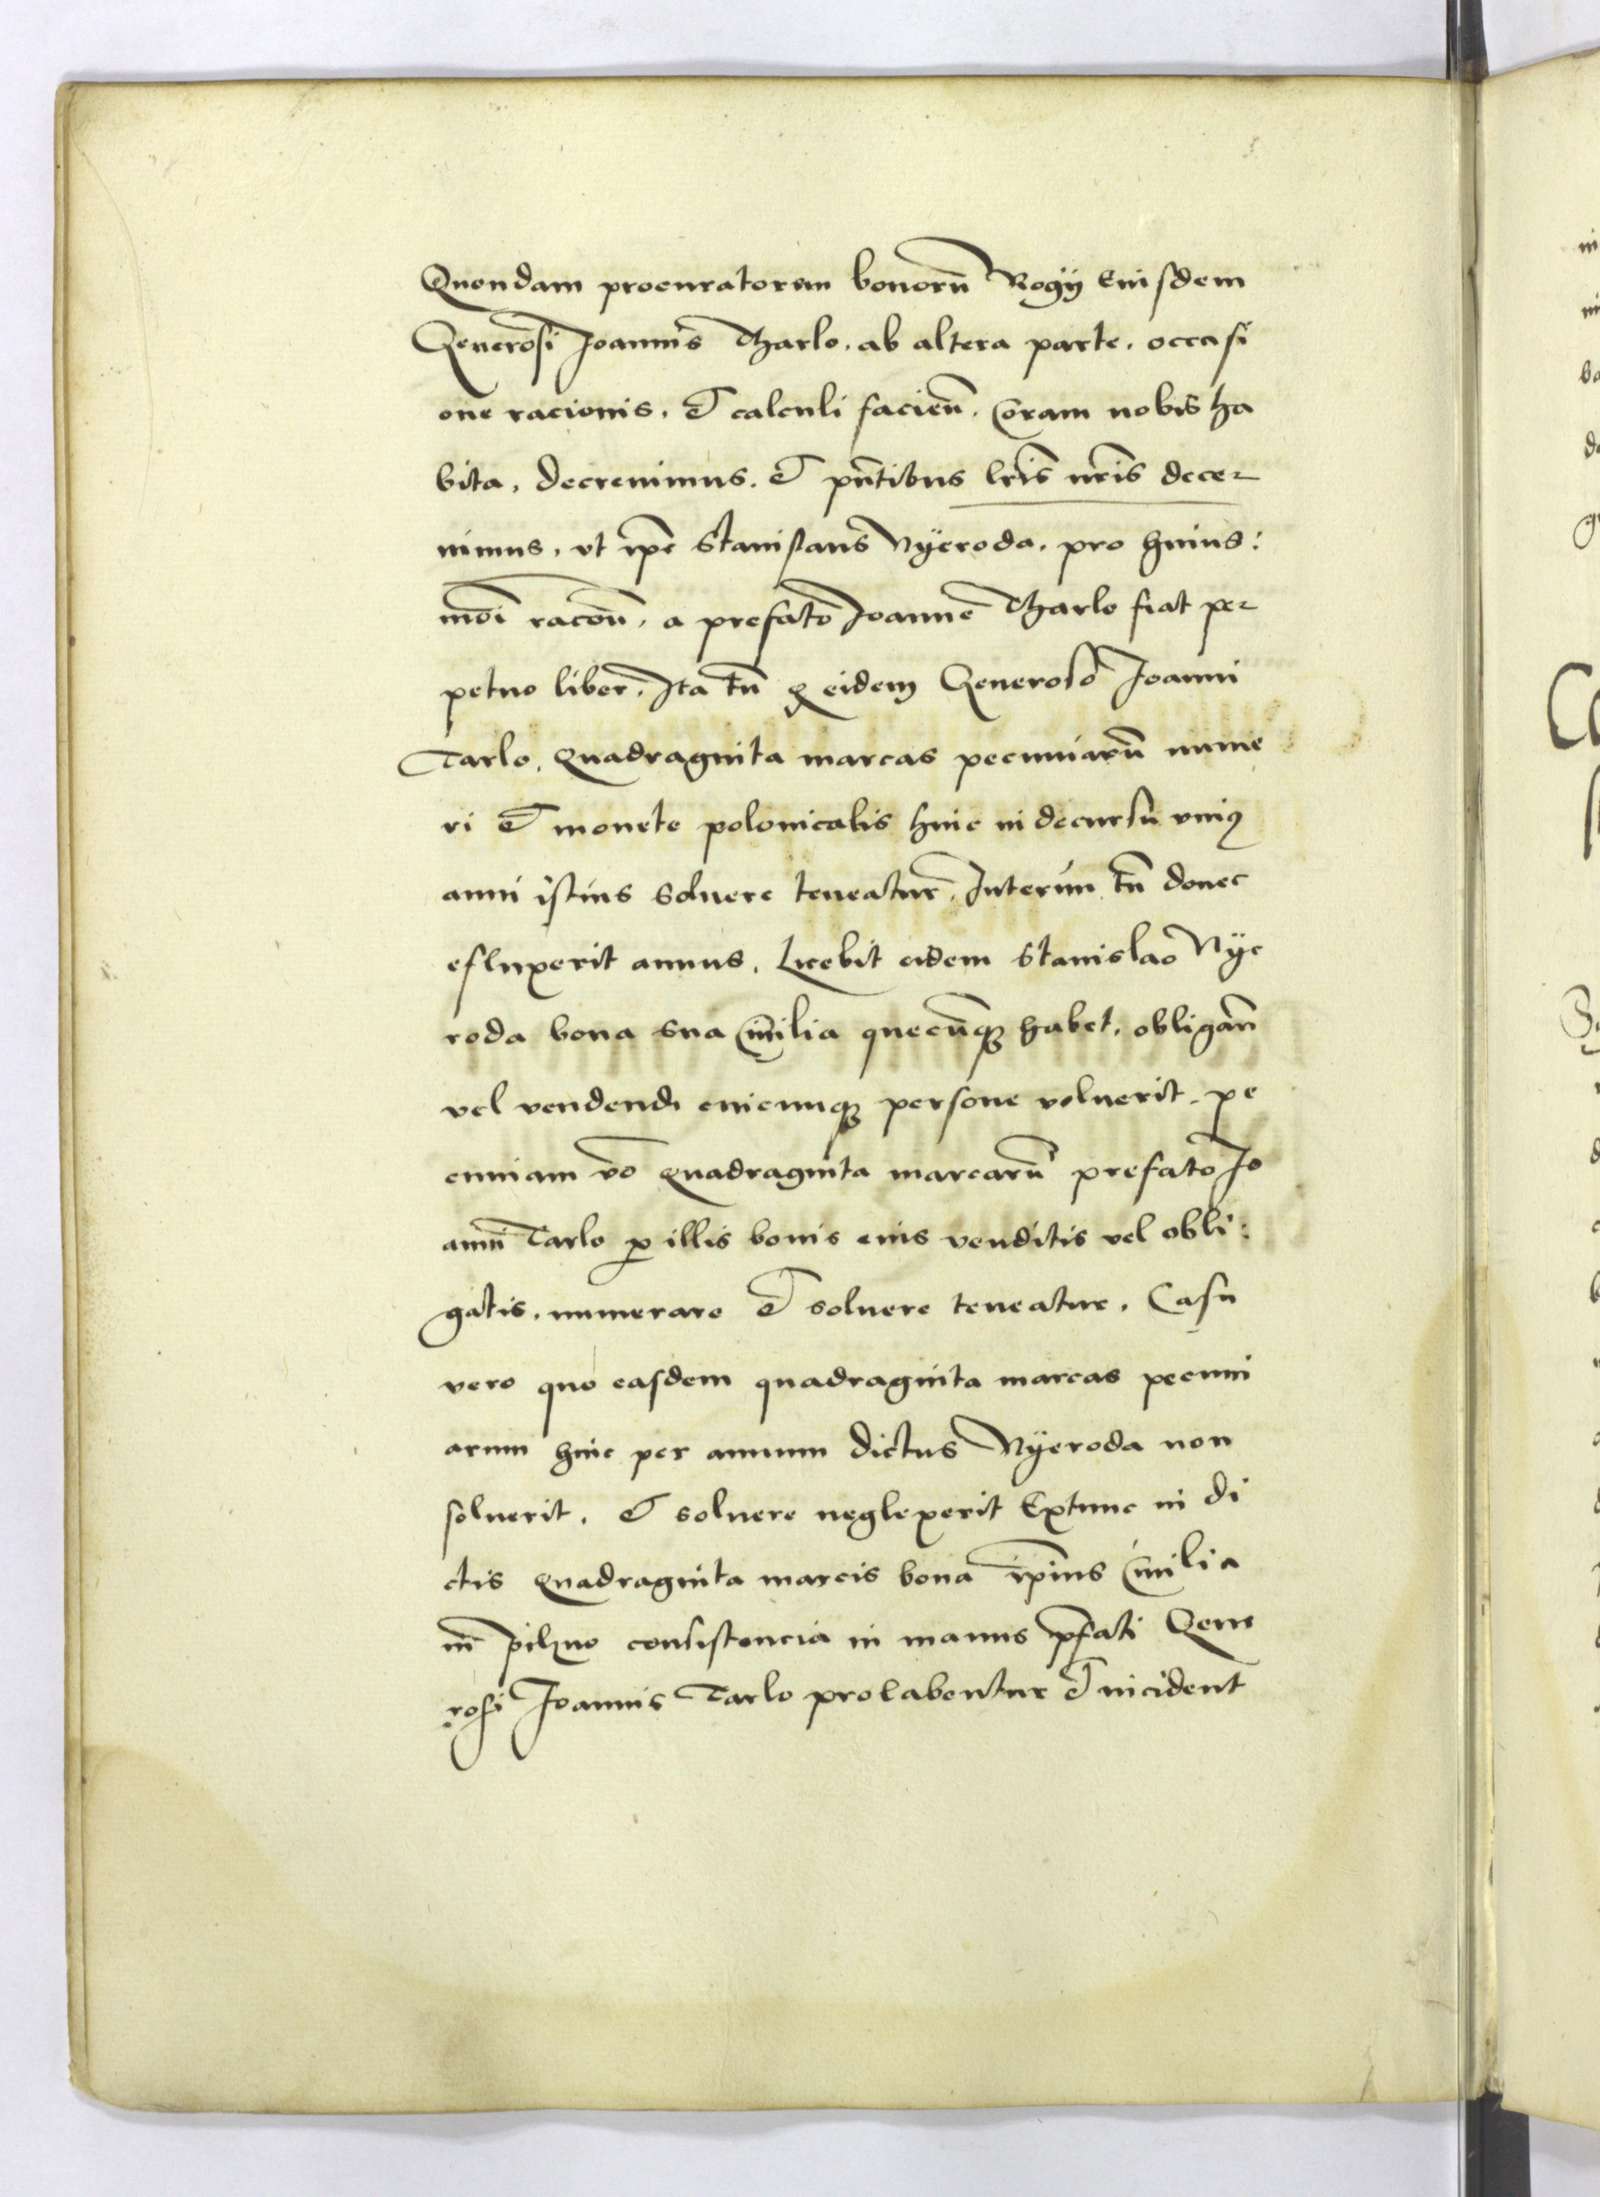 Quondam procuratorem bonorū Rogÿ Eiusdem
Generosi Joannis Tharlo. ab altera parte. occasi
one racionis. Et calculi facieñ. Coram nobis ha
bita. Decreuimus. Et pn̄tibus lrīs nrīs decer
nimus. vt ip̄e Stanislaus Nÿeroda. pro huius:
mōi racoñ. a prefato Joanne Tharlo fiat per
petuo liber. Ita tn̄ q eidem Generoso Joanni
Tarlo. Quadraginta marcas pecuniarū nume
ri Et monete polonicalis hinc in decursu vniꝰ
anni istius soluere teneatur. Interim tn̄ donec
efluxerit annus. Licebit eidem Stanislao Nÿe
roda bona sua Ciuilia quecūqꝫ habet. obligan̄
vel vendendi cuicunqꝫ persone voluerit. pe
cuniam vō Quadraginta marcarū prefato Jo
anni Tarlo ꝓ illis bonis eius venditis vel obli:
gatis. numerare Et soluere teneatur. Casu
vero quo easdem quadraginta marcas pecuni
arum hinc per annum dictus Nÿeroda non
soluerit. Et soluere neglexerit Extunc in di
ctis Quadraginta marcis bona ip̄ius Ciuilia
in Pilzno consistencia in manus p̄fati Gene
rosi Joannis Tarlo prolabentur Et incident